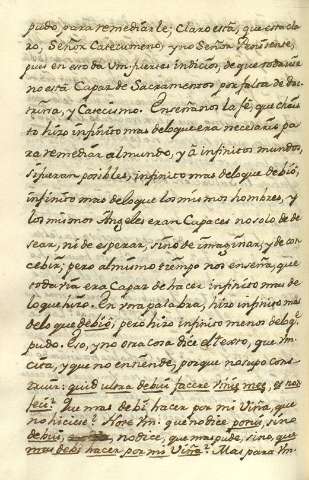 pudo, para remediarle; Claro està, que està cla
ro, Señor Catecumeno, y no Señor Penitente,
pues en esto da Vm. fuertes indicios, de que todavia
no està Capaz de Sacramentos por falta de doc
trina, y Catecismo. Enseñanos la fè, que Chris
to hizo infinito mas de lo que era necesario pa
ra remediar al mundo, y à infinitos mundos,
si fueran posibles, infinito mas de lo que debiò,
infinito mas de lo que los mismos hombres, y
los mismos Angeles eran Capaces no solo de de
sear, ni de esperar, sino de imaginar, y de con
cebir; pero al mismo tiempo nos enseña, que
todavia era Capaz de hacer infinito mas de
lo que hizo. En una palabra, hizo infinito mas
de lo que debiò; pero hizo infinito menos de lo q.
pudo. Eso, y no otra cosa dice el texto, que Vm.
cita, y que no entiende, porque no supo cons
truir: quid ultra debui facere Vineæ meæ, et non
feci? Que mas debì hacer por mi Viña, que
no hiciese? Note Vm. que no dice potui, sino
debui, no dice, que mas pude, sino, que
mas debì hacer por mi Viña? Mas para Vm.